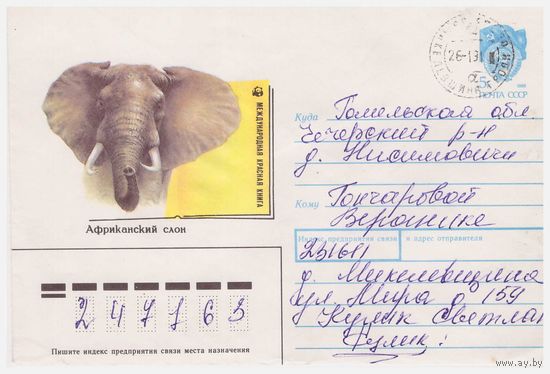 26-1-91
5к
ПОЧТА СССР
МЕЖДУНАРОДНАЯ КРАСНАЯ КНИГА
Африканский слон
Куда Гомельская обл.
Чечерский р-н
д. Нисимовичи
Кому Гончаровой
Веронике
Индекс предприятия связи и адрес отправителя
231611
д. Микелевщина
ул. Мира д 159
Кулик Светлан
247163
Пишите индекс предприятия связи места назначения
www.ay.by